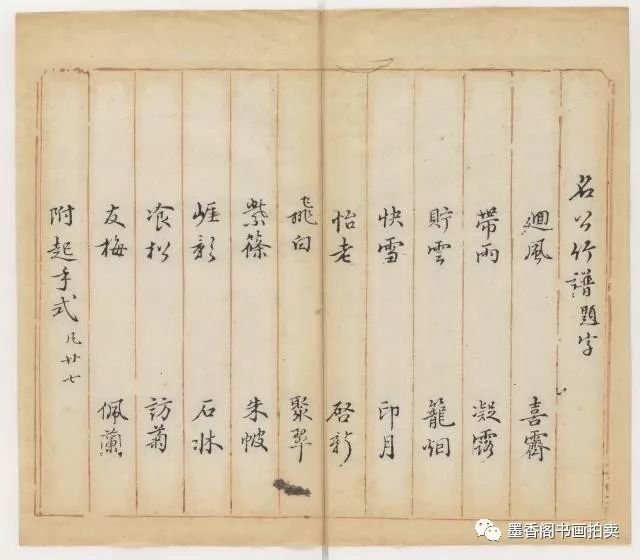 名公竹譜題字
迴風 喜霽
帶雨 凝露
貯雲 籠烟
快雪 印月
怡老 啓新
飛白 聚翠
紫篠 朱帔
崖影 石牀
飡松 訪菊
友梅 佩蘭
附起手式 凡廿七
墨香阁书画拍卖